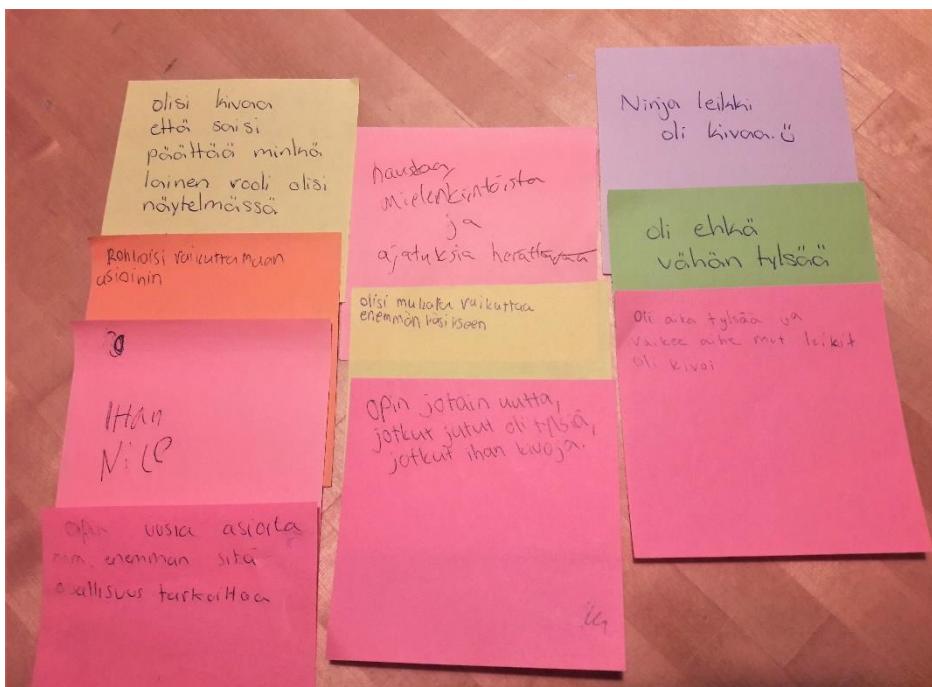 olisi kivaa
että saisi
päättää minkä
lainen rooli olisi
näytelmässä
Rohkaisi vaikuttamaan
asioihin
IHan
NiCe
opin uusia asioita
mm. enemmän sitä
osallisuus tarkoittaa
hauskaa,
mielenkiintoista
ja
ajatuksia herättävää
olisi mukava vaikuttaa
enemmän
opin jotain uutta,
jotkut jutut oli tylsiä,
jotkut ihan kivoja.
Ninja leikki
oli kivaa. ü
oli ehkä
vähän tylsää
Oli aika tylsää ja
vaikee aihe mut leikit
oli kivoi